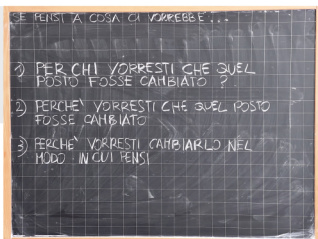 SE PENSI A COSA CI VORREBBE...
1) PER CHI VORRESTI CHE QUEL
POSTO FOSSE CAMBIATO ?
2) PERCHE' VORRESTI CHE QUEL POSTO
FOSSE CAMBIATO
3) PERCHE' VORRESTI CAMBIARLO NEL
MODO IN CUI PENSI